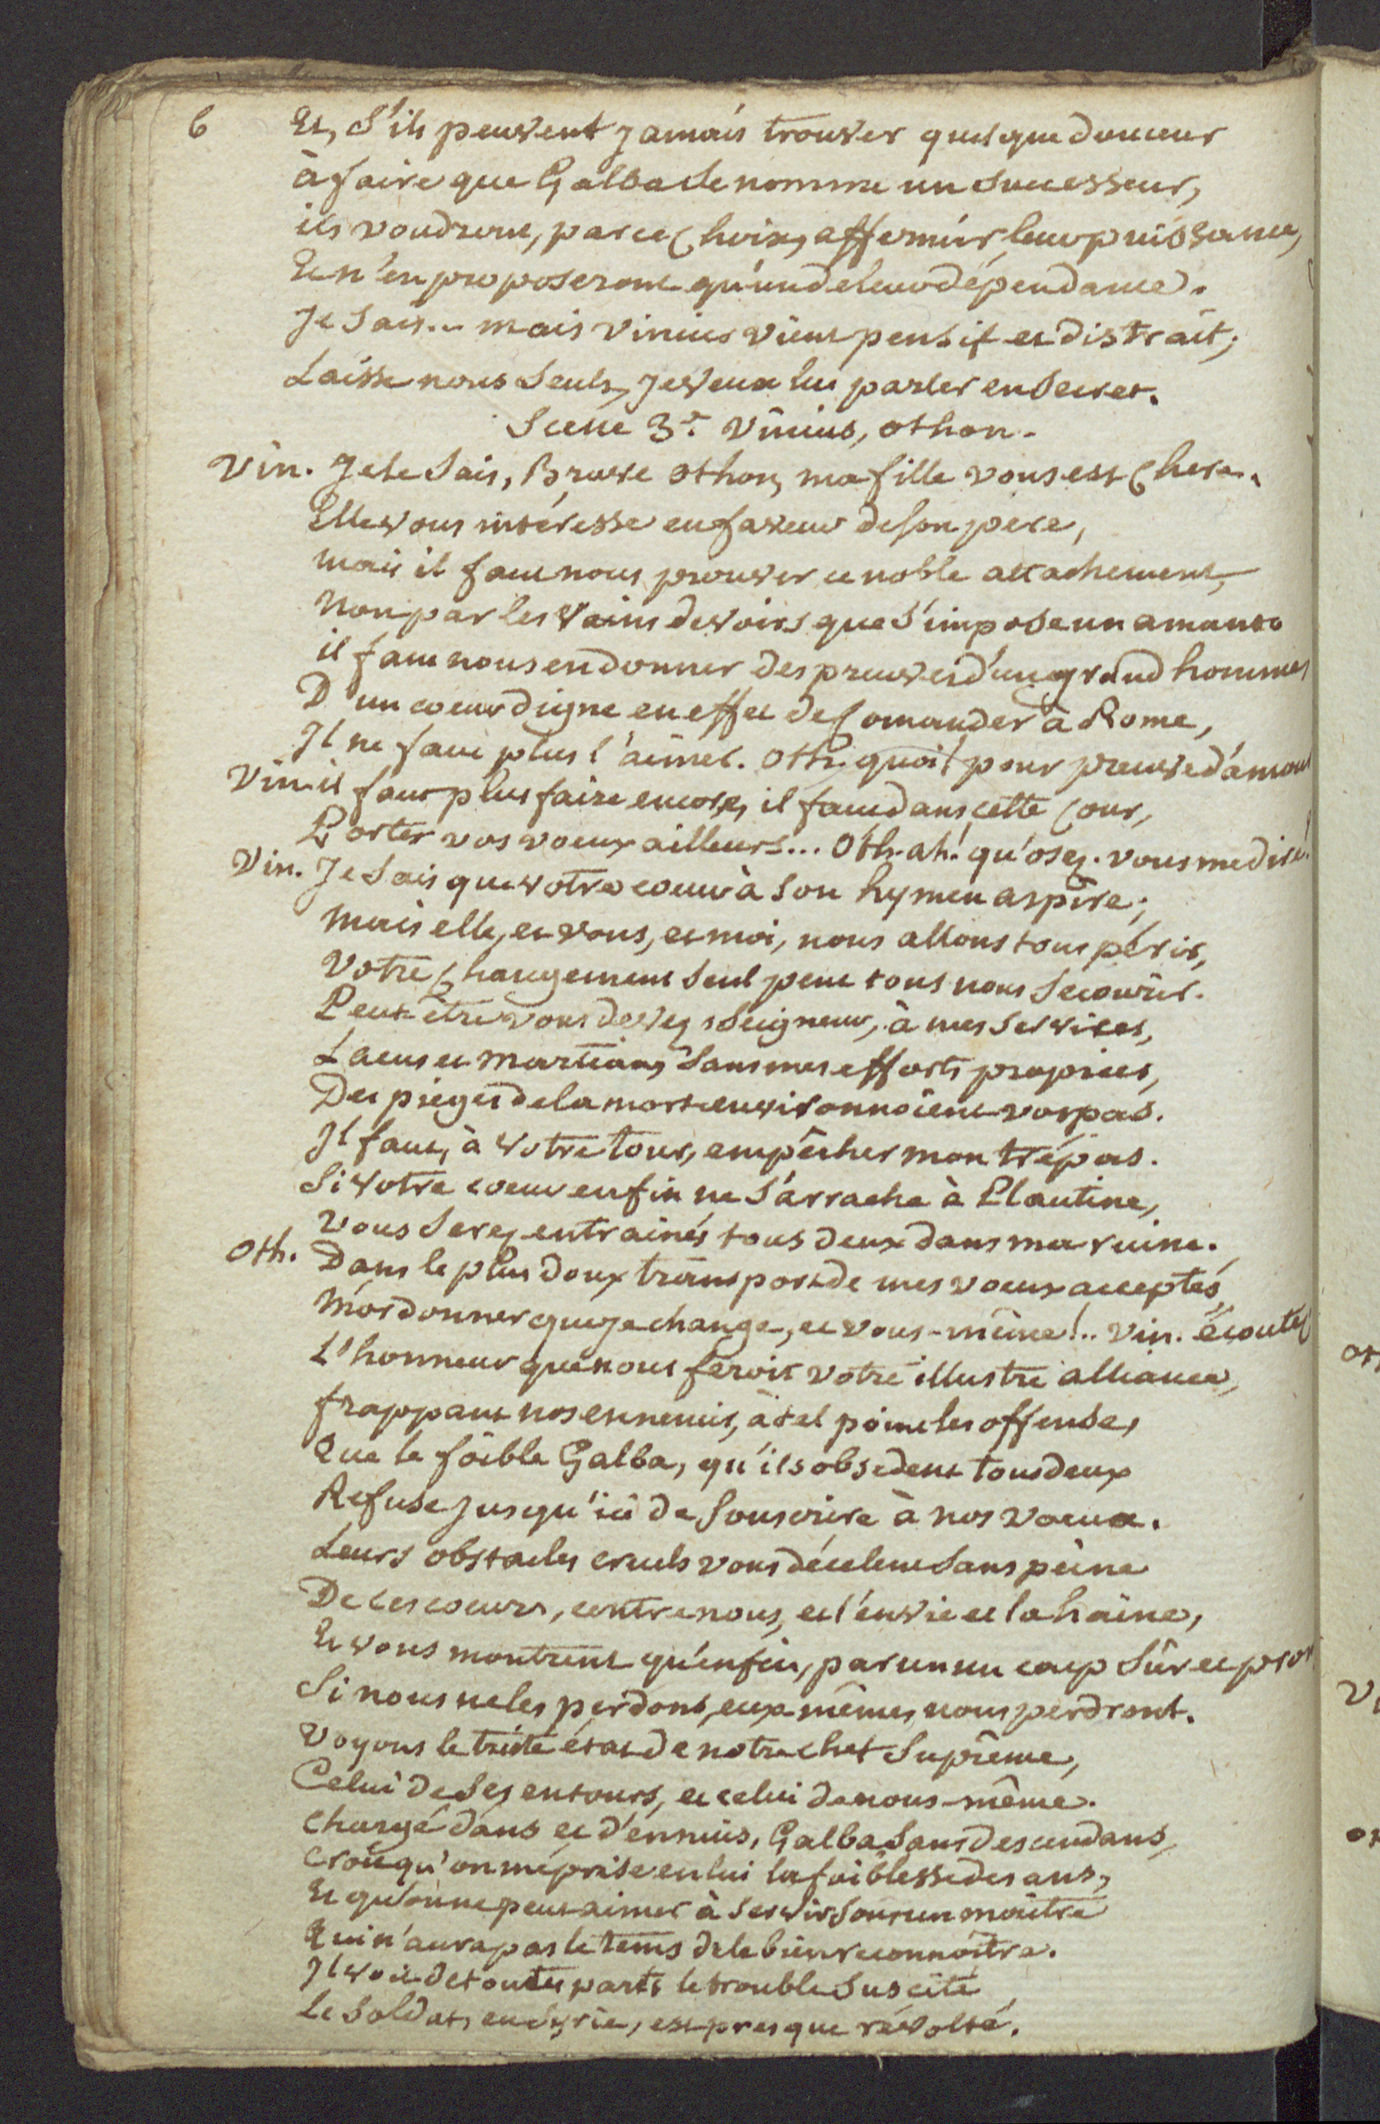 6 Et, s'ils peuvent jamais trouver quelque douceur
à faire que Galba se nomme un successeur,
ils voudront, par ce choix, affermir leur puissance,
Et n'en proposeront qu'un de leur dépendance.
Je sais... mais Vinius vient pensif et distrait;
Laisse nous seuls, je veux lui parler en secret.
Scene 3e. Vinius, othon.
Vin. Je le sais, Brave othon, ma fille vous est chere.
Elle vous intéresse en faveur de son pere,
mais il faut nous prouver ce noble attachement,
Non par les vains devoirs que s'impose un amant.
il faut nous en donner des preuves d'un grand homme,
D'un coeur digne en effet de Comander à Rome,
Il ne faut plus l'aimer. Oth. quoi! pour preuve d'amour
Vin. il faut plus faire encore, il faut dans cette Cour,
Porter vos voeux ailleurs... Oth. ah! qu'osez-vous me dire!
Vin. Je sais que votre coeur à son hymen aspire;
Mais elle, et vous, et moi, nous allons tous périr,
Votre changement seul peut tous nous secourir.
Peut être vous devez, seigneur, à mes services,
Lacus et Martian, sans mes efforts propices,
Des pieges de la mort environnoient vos pas.
Il faut, à votre tour, empêcher mon trépas.
Si votre coeur enfin ne s'arrache à Plautine,
Vous serez entrainés tous deux dans ma ruine.
Oth. Dans le plus doux transport de mes voeux acceptés,
M'ordonner que je change, et vous-même!.. Vin. écoutez
L'honneur que nous feroit votre illustre alliance,
frappant nos ennemis, à tel point les offense,
Que le foible Galba, qu'ils obsedent tous deux
Refuse jusqu'ici de souscrire à nos voeux.
Leurs obstacles cruels vous décelent sans peine
De ces coeurs, contre nous, et l'envie et la haine,
Et vous montrent qu'enfin, par un coup sûr et pro
Si nous ne les perdons, eux mêmes nous perdront.
Voyons le triste état de notre chef suprême,
Celui de ses entours, et celui de nous-même.
chargé d'ans et d'ennuis, Galba sans descendans,
croit qu'on méprise en lui la foiblesse des ans,
Et qu'on ne peut aimer à servir sous un maître
Qui n'aura pas le tems de le bien reconnoître.
Il voit de toutes parts le trouble suscité
Le soldat, en Syrie, est presque révolté.